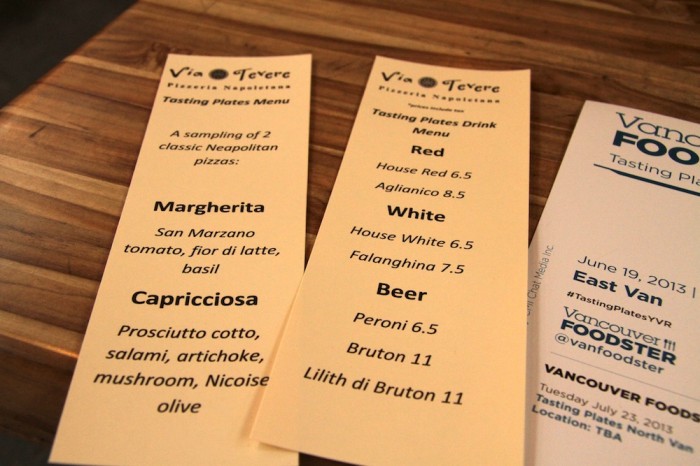 Via Tevere
Pizzeria Napoletana
Tasting Plates Menu
A sampling of 2
classic Neapolitan
pizzas:
Margherita
San Marzano
tomato, fior di latte,
basil
Capricciosa
Prosciutto cotto,
salami, artichoke,
mushroom, Nicoise
olive
Via Tevere
Pizzeria Napoletana
*prices include tax
Tasting Plates Drink
Menu
Red
House Red 6.5
Aglianico 8.5
White
House White 6.5
Falanghina 7.5
Beer
Peroni 6.5
Bruton 11
Lilith di Bruton 11
Vanc
FOO
Tasting Pla
Chat Media Inc
June 19, 2013 |
East Van
#TastingPlatesYVR
Vancouver
FOODSTER
@vanfoodster
VANCOUVER FOODS
Tuesday July 23, 2013
Tasting Plates North Van
Location: TBA